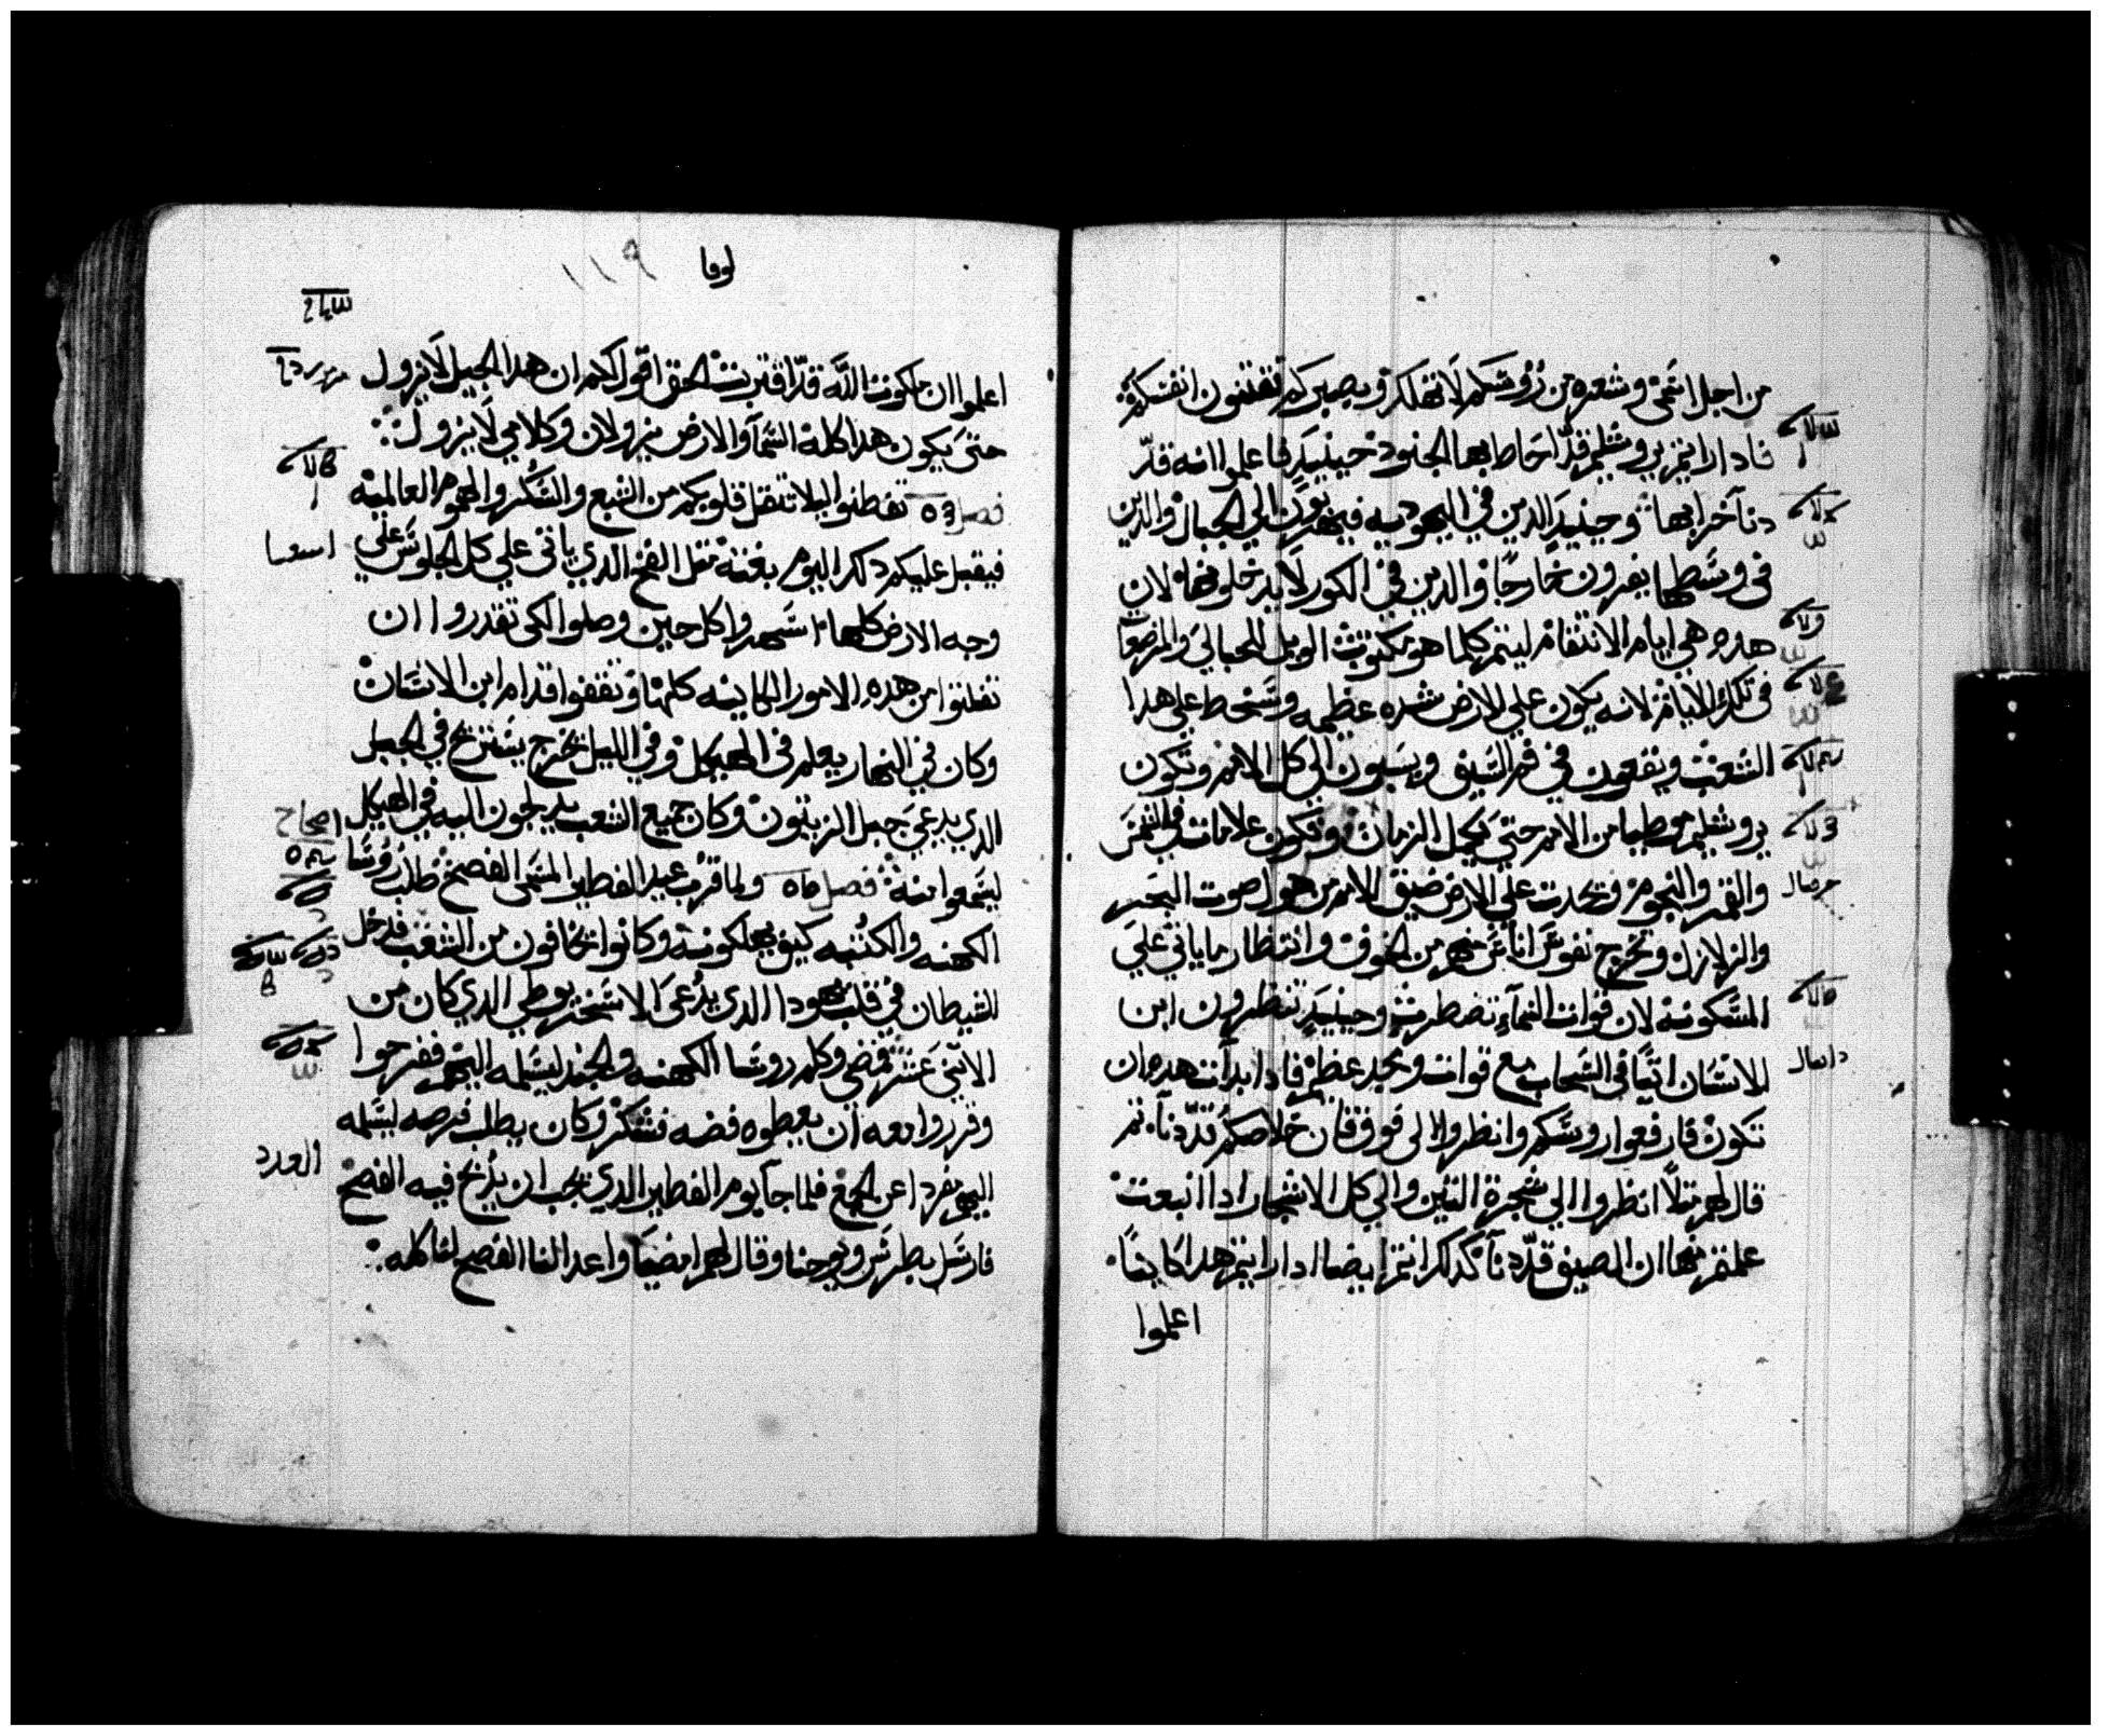 من اجل اسمى وشعره من رووسكم لا تهلك وبصبركم تقتنون انفسكم
فادا رايتم يروشليم قد احاط بها الجنود حينيد فاعلموا انه قد
دنا خرابها وحينيد الدين في اليهوديه فيهربون الي الجبال والدين
في وسطها يفرون خارجا والدين في الكور لا يدخلونها لان
هده هي ايام الانتقام ليتم كلما هو مكتوب الويل للحبالي والمرضعات
في تلك الايام لانه يكون علي الارض شده عظيمه وسخط علي هدا
الشعب ويقعون في فم السيف ويسبون الي كل الامم وتكون
يروشليم موطيا من الامم حتي يكمل الزمان وتكون علامات في الشمس
والقمر والنجوم وتحدت علي الارض ضيق الامم من هول صوت البحر
والزلازل وتخرج نفوس اناس منهم من الخوف وانتظار ما ياتي علي
المسكونه لان قوات السماء تضطرب وحينيد تنظرون ابن
الانسان اتيا في السحاب مع قوات ومجد عظيم فادا بدات هده ان
تكون فارفعوا روسكم وانظروا الى فوق فان خلاصكم قد دنا ثم
قال لهم متلا انظروا الي شجرة التين والي كل الاشجار ادا انبعت
علمتم منها ان الصيف قد دنا كدلك انتم ايضا ادا رايتم هدا كاينا
اعلموا
لوقا
١١٩
اعلموا ان ملكوت الله قد اقتربت الحق اقول لكم ان هدا الجيل لا يزول
حتى يكون هدا كله السما والارض يزولان وكلامي لا يزول
فصل تفطنوا ليلا تتقل قلوبكم من الشبع والسكر والهموم العالميه
فيقبل عليكم دلك اليوم بغته متل الفخ الدي ياتي علي كل الجلوس علي
وجه الارض كلها اسهروا كل حين وصلوا لكى تقدروا ان
تفلتوا من هده الامور الكاينه كلها وتقفوا قدام ابن الانسان
وكان في النهار يعلم فى الهيكل وفي الليل يخرج يستريح في الجبل
الدي يدعي جبل الزيتون وكان جميع الشعب يدلجون اليه في الهيكل
ليسمعوا منه فصل ولما قرب عيد الفطير المسمى الفصح طلب روسا
الكهنه والكتبه كيف يهلكونه وكانوا يخافون من الشعب فدخل
الشيطان في قلب يهودا الدى يدعى الاسخريوطي الدي كان من
الاتنى عشر فمضى وكلم روسا الكهنه والجند ليسلمه اليهم ففرحوا
وقرروا معه ان يعطوه فضه فشكر وكان يطلب فرصه ليسلمه
اليهم مفردا عن الجمع فلما جا يوم الفطير الدي يجب ان يدبح فيه الفصح
فارسل بطرس ويوحنا وقال لهم امضيا واعدا لنا الفصح لناكله
اصحاح
العدد